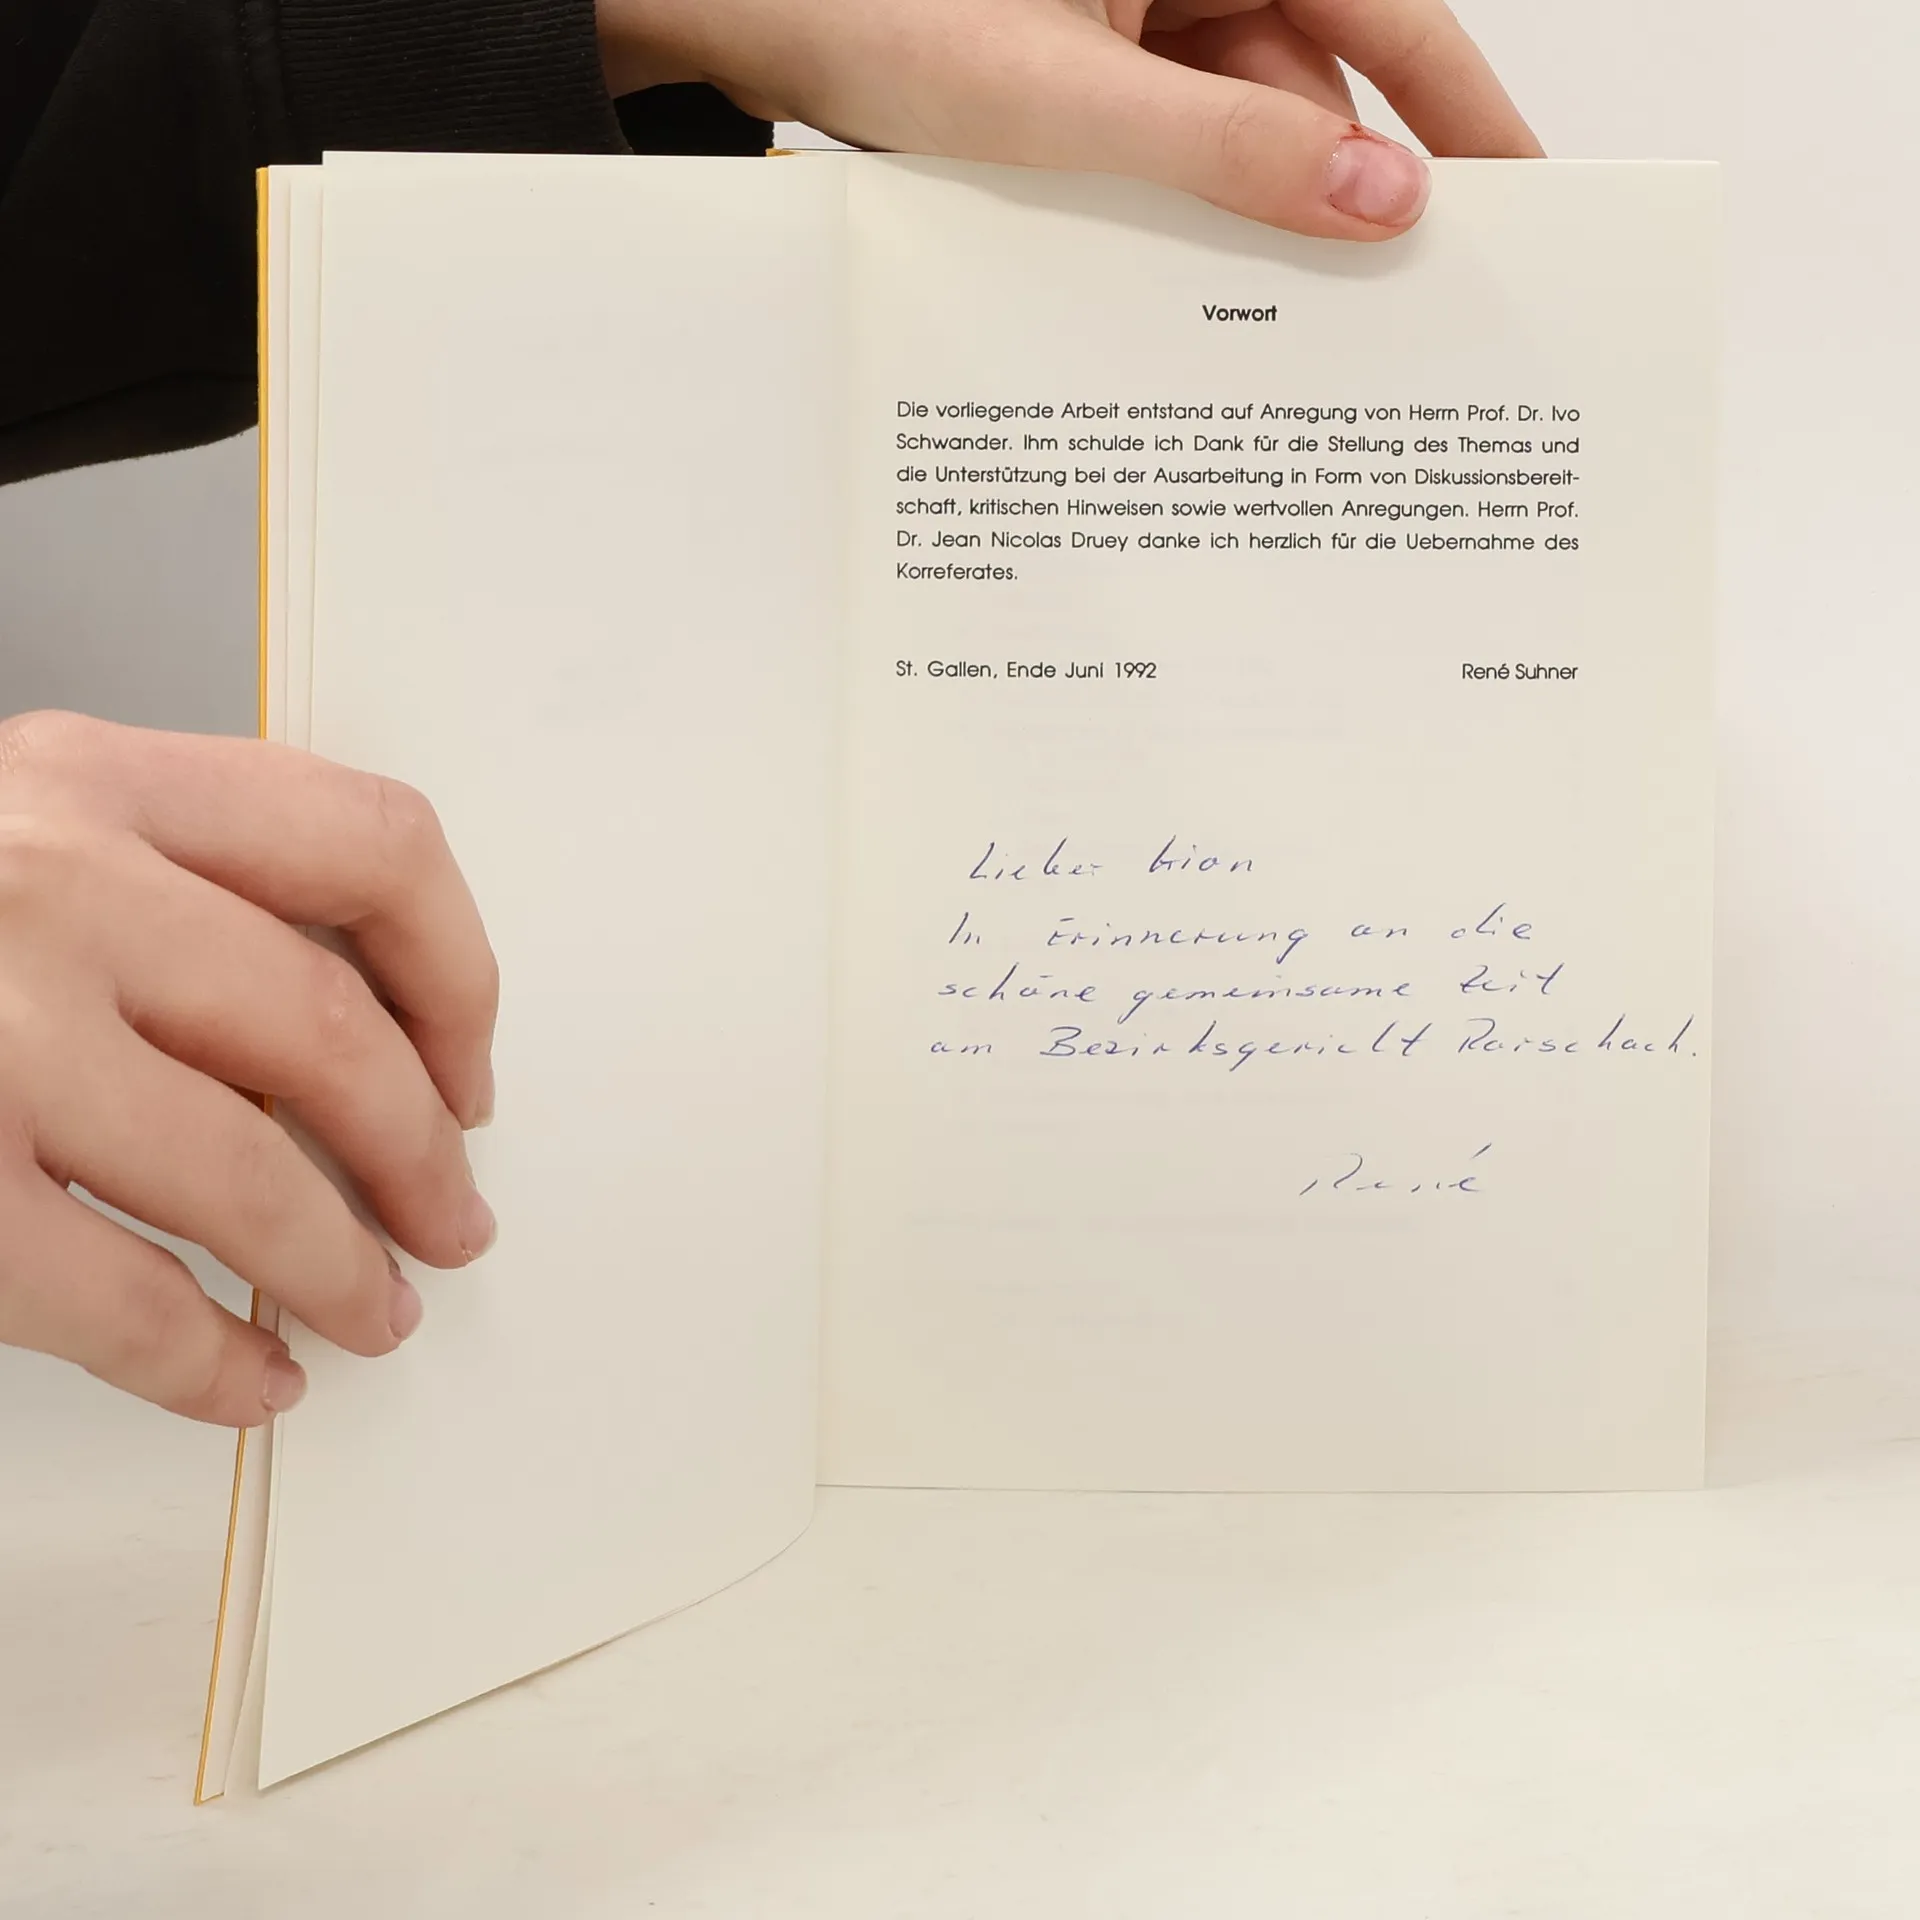 Vorwort
Die vorliegende Arbeit entstand auf Anregung von Herrn Prof. Dr. Ivo
Schwander. Ihm schulde ich Dank für die Stellung des Themas und
die Unterstützung bei der Ausarbeitung in Form von Diskussionsbereit-
schaft, kritischen Hinweisen sowie wertvollen Anregungen. Herrn Prof.
Dr. Jean Nicolas Druey danke ich herzlich für die Uebernahme des
Korreferates.
St. Gallen, Ende Juni 1992 René Suhner
Lieber Gion
In Erinnerung an die
schöne gemeinsame Zeit
am Bezirksgericht Rorschach.
René